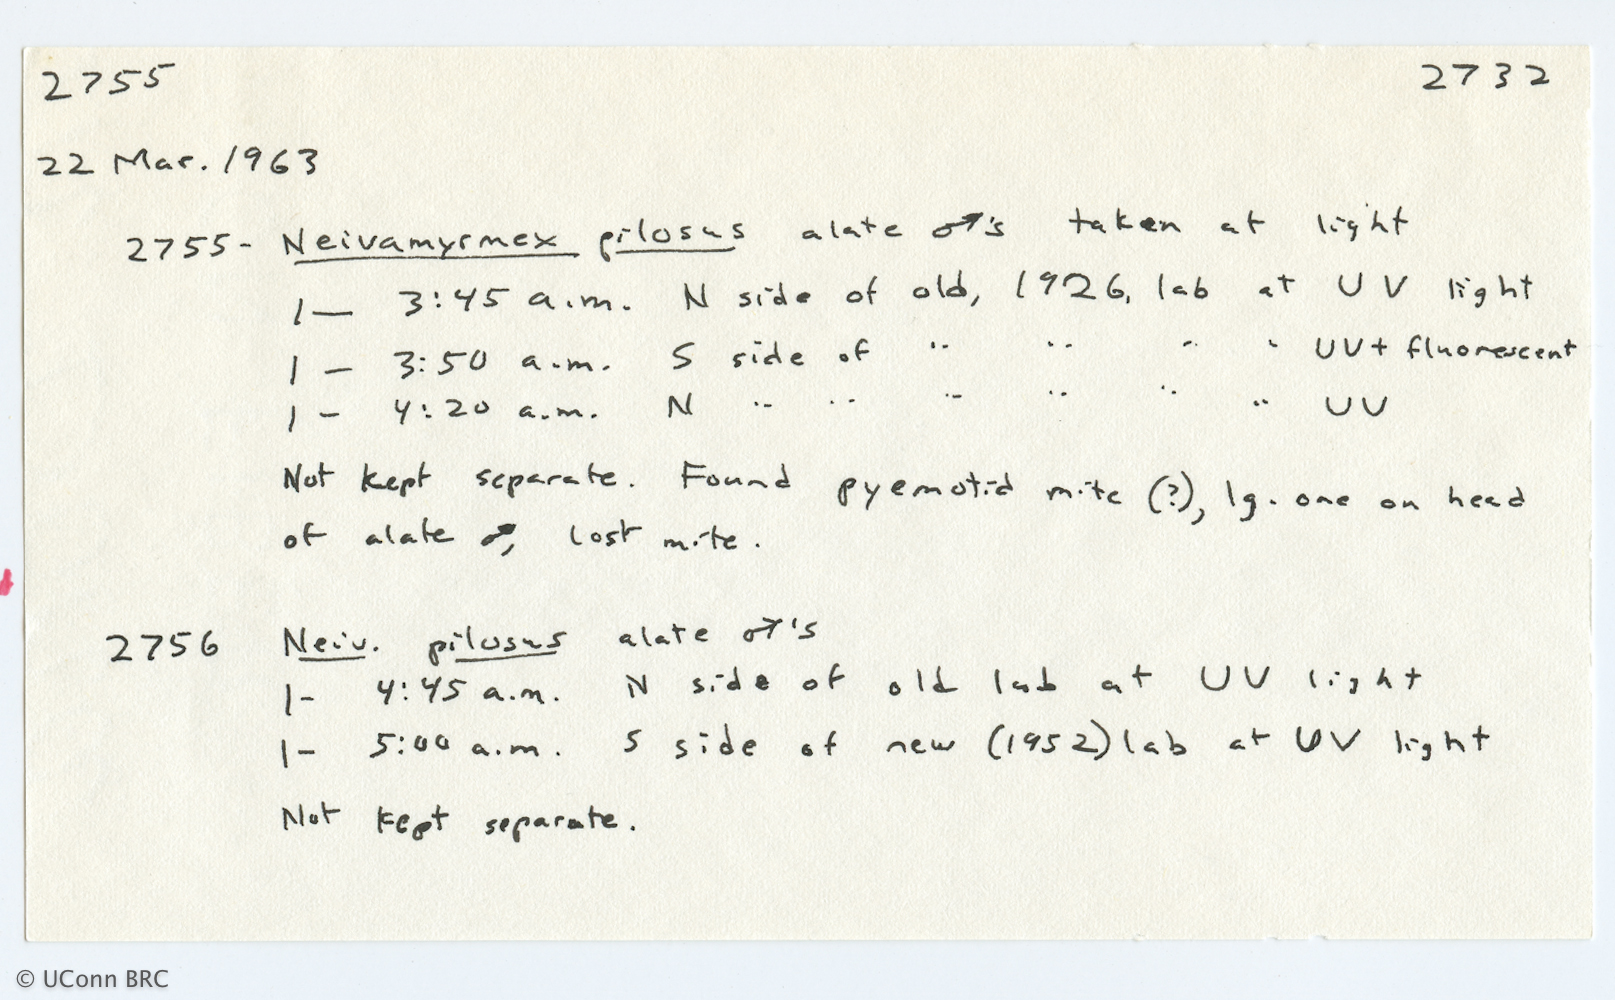 2755 2732
22 Mar. 1963
2755- Neivamyrmex pilosus alate ♂'s taken at light
1— 3:45 a.m. N side of old, 1926, lab at UV light
1 — 3:50 a.m. S side of " " " " UV + fluorescent
1 - 4:20 a.m. N " " " " " " UV
Not kept separate. Found pyemotid mite (?), lg. one on head
of alate ♂, lost mite.
2756 Neiv. pilosus alate ♂'s
1- 4:45 a.m. N side of old lab at UV light
1- 5:00 a.m. S side of new (1952) lab at UV light
Not kept separate.
© UConn BRC